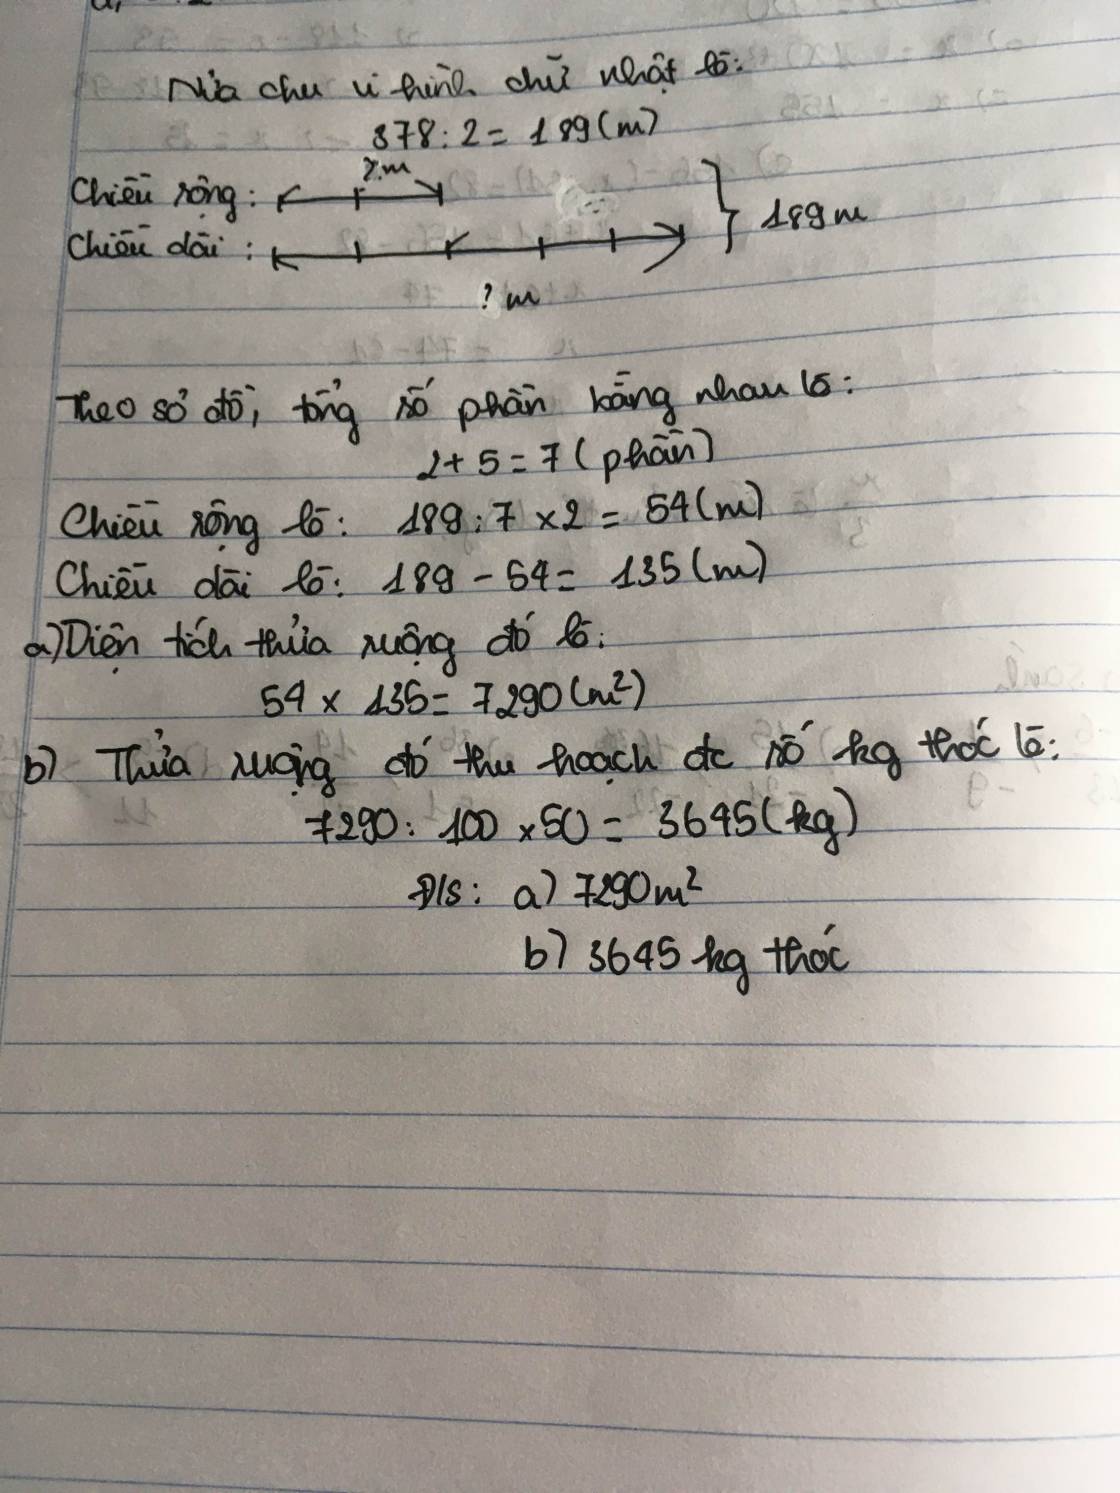 Nửa chu vi hình chữ nhật là:
378 : 2 = 189 (m)
? m
Chiều rộng:
Chiều dài :
189 m
? m
Theo sơ đồ, tổng số phần bằng nhau là:
2 + 5 = 7 (phần)
Chiều rộng là: 189 : 7 × 2 = 54 (m)
Chiều dài là: 189 - 54 = 135 (m)
a) Diện tích thửa ruộng đó là:
54 × 135 = 7290 (m²)
b) Thửa ruộng đó thu hoạch đc số kg thóc là:
7290 : 100 × 50 = 3645 (kg)
Đ/S: a) 7290 m²
b) 3645 kg thóc